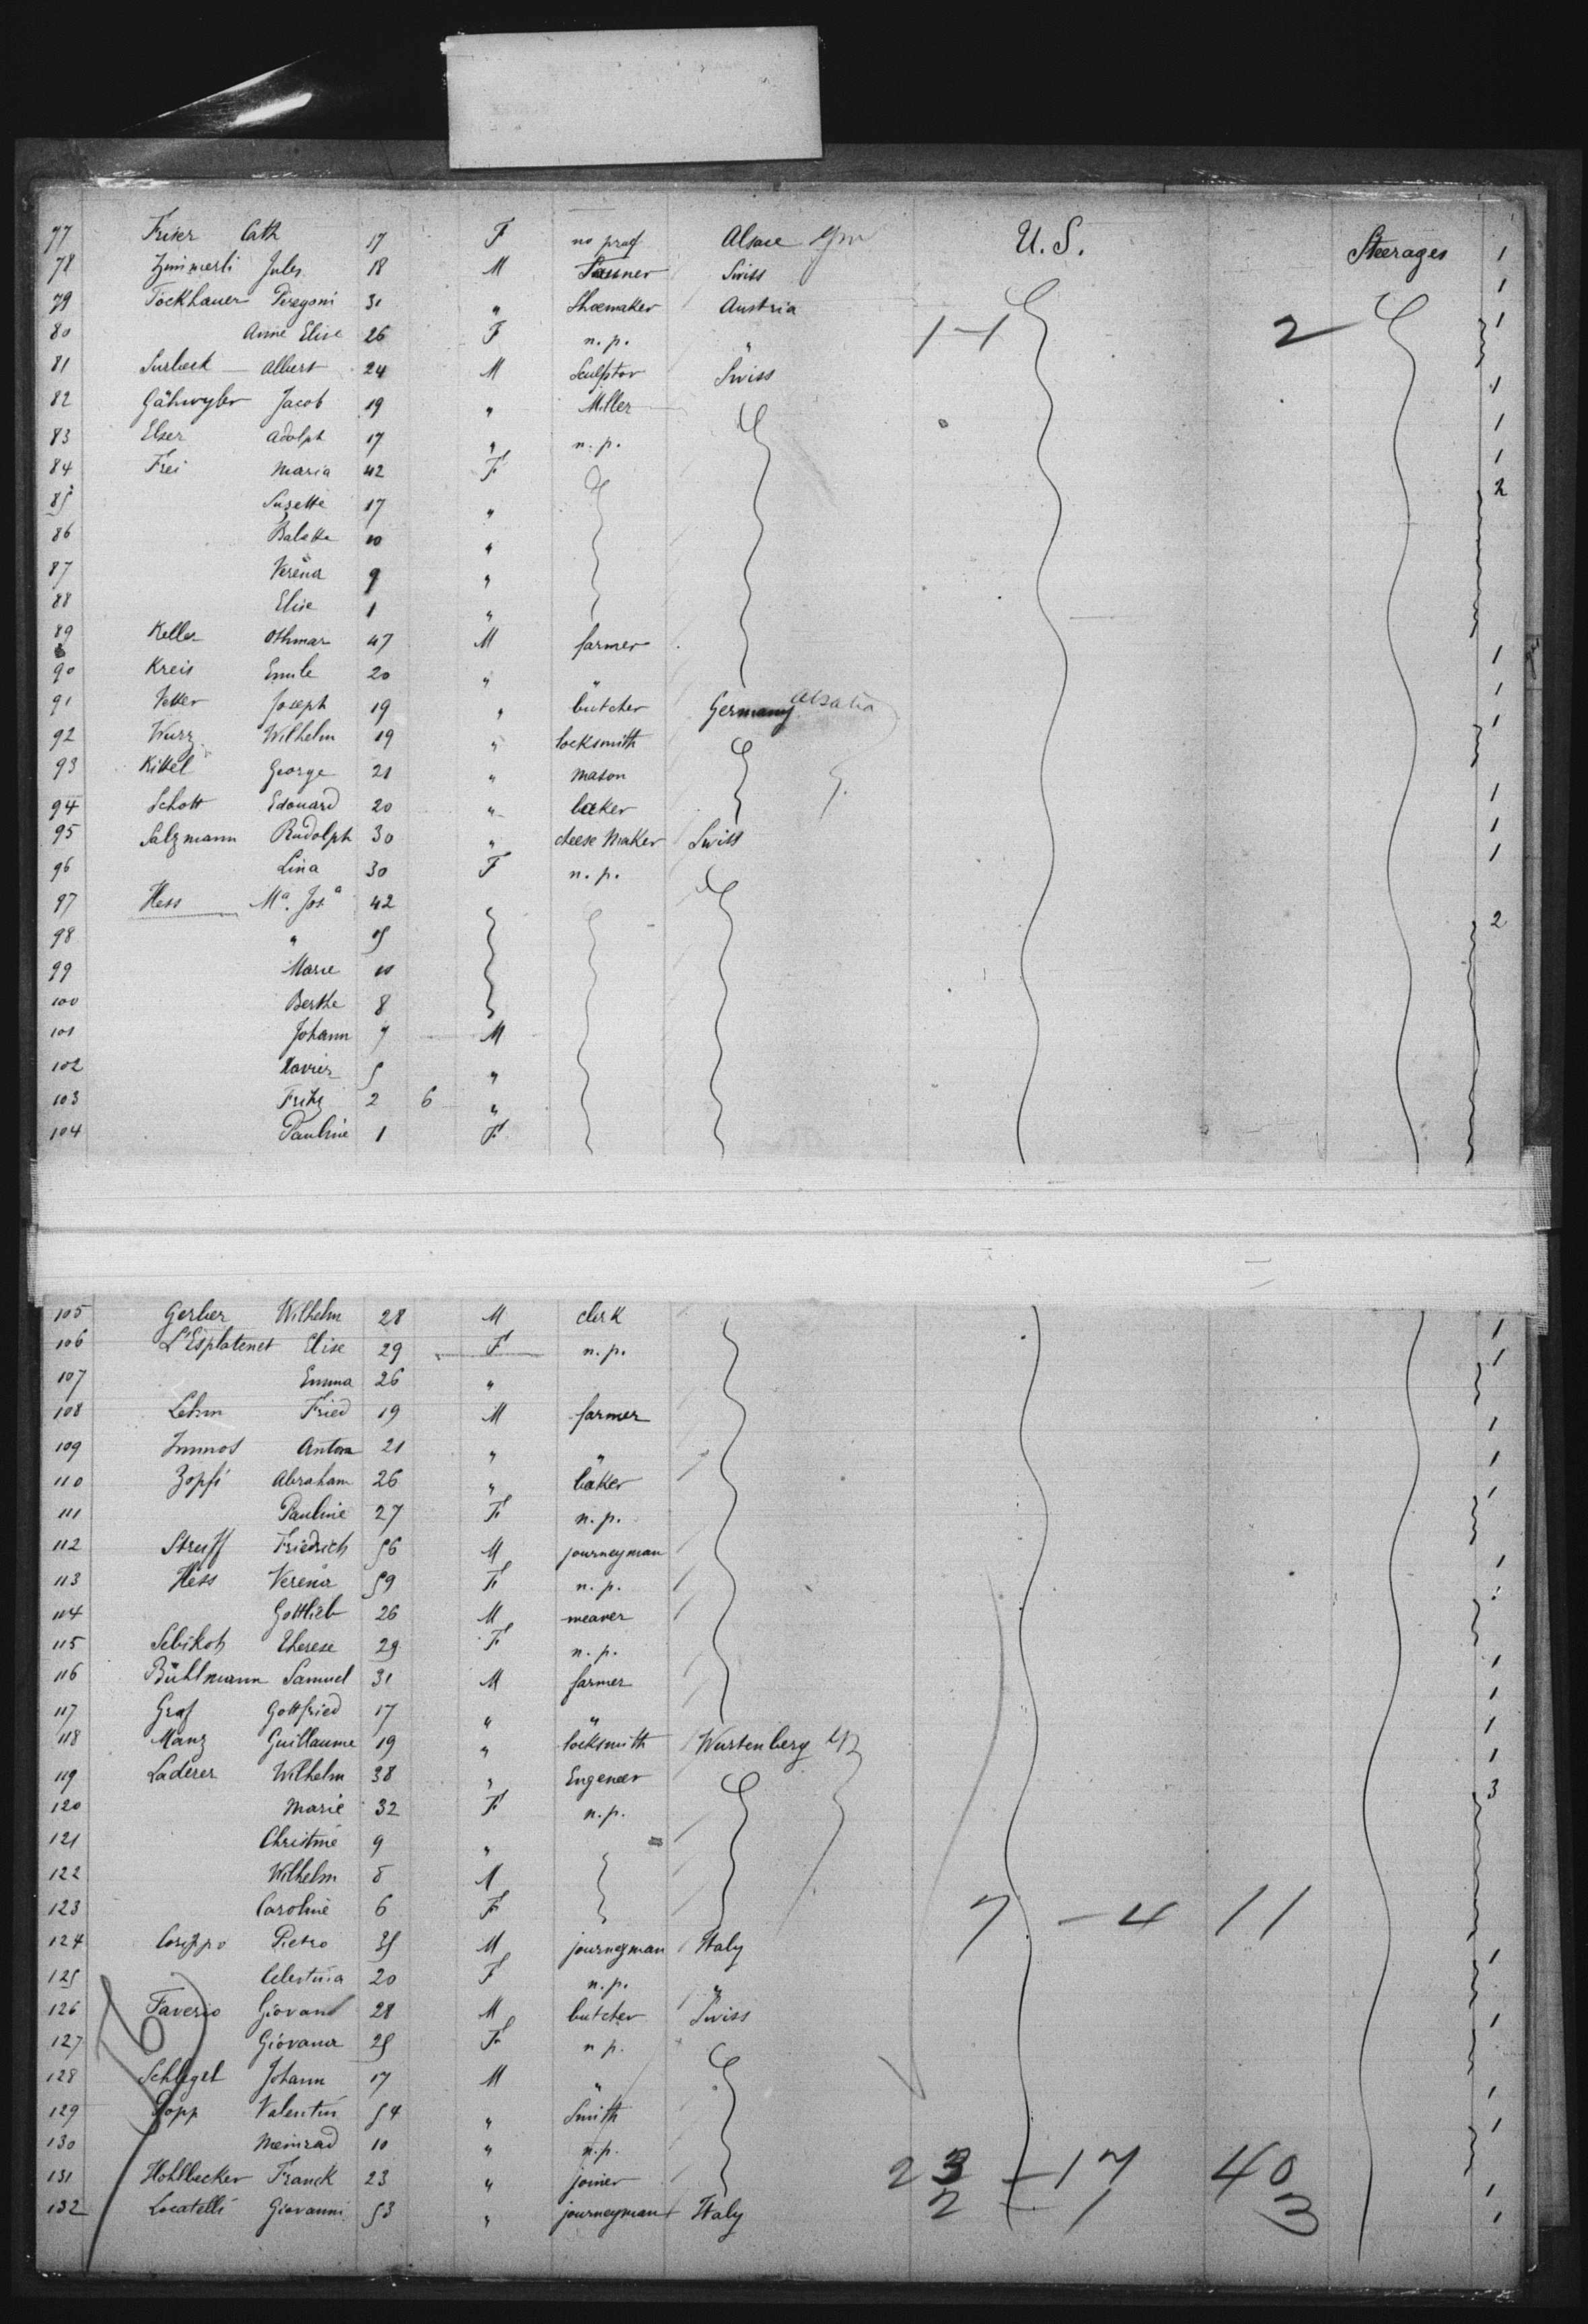 77 Friser Cath 17 F no prof Alsace Gm U.S. Steerages 1
78 Zimmerli Jules 18 M Tanner Swiss 1
79 Töckhauer Peregoni 31 " Shoemaker Austria 1
80 Anne Elise 26 F n. p. " 1-1 2
81 Surbeck Albert 24 M Sculptor Swiss 1
82 Gähwyler Jacob 19 " Miller 1
83 Elser Adolph 17 " n. p. 1
84 Frei Maria 42 F 2
85 Susette 17 "
86 Babette 10 "
87 Verena 9 "
88 Elise 1 "
89 Keller Othmar 47 M farmer 1
90 Kreis Emile 20 " " 1
91 Vetter Joseph 19 " butcher Germany Alsatia 1
92 Wurz Wilhelm 19 " locksmith
93 Kittel George 21 " mason 1
94 Schott Edouard 20 " baker 1
95 Salzmann Rudolph 30 " cheese maker Swiss 1
96 Lina 30 F n. p.
97 Hess Ma. Josa 42 2
98 " 15
99 Marie 10
100 Berthe 8
101 Johann 7 M
102 Xavier 5 "
103 Fritz 2 6 "
104 Pauline 1 F
105 Gerber Wilhelm 28 M clerk 1
106 L'Esplatenet Elise 29 F n. p. 1
107 Emma 26 "
108 Lehm Fried 19 M farmer 1
109 Immos Anton 21 " " 1
110 Zopfi Abraham 26 " baker 1
111 Pauline 27 F n. p.
112 Streiff Friedrich 56 M journeyman 1
113 Hess Verena 59 F n. p. 1
114 Gottlieb 26 M weaver
115 Therese 29 F n. p. 1
116 Bühlmann Samuel 31 M farmer 1
117 Graf Gottfried 17 " " 1
118 Manz Guillaume 19 " locksmith Wurtenberg 1
119 Laderer Wilhelm 38 " Engeneer 3
120 Marie 32 F n. p.
121 Christine 9 "
122 Wilhelm 8 M
123 Caroline 6 F 7 - 4 11
124 Pietro 35 M journeyman Italy 1
125 Celestina 20 F n. p. "
126 Faverio Giovani 28 M butcher Swiss 1
127 Giovana 25 F n p.
128 Schlegel Johann 17 M " 1
129 Popp Valentin 54 " Smith 1
130 Meinrad 10 " n. p.
131 Hohlbecker Franck 23 " joiner 23 - 17 40 1
132 Locatelli Giovanni 53 " journeyman Italy 2 - 1 3 1